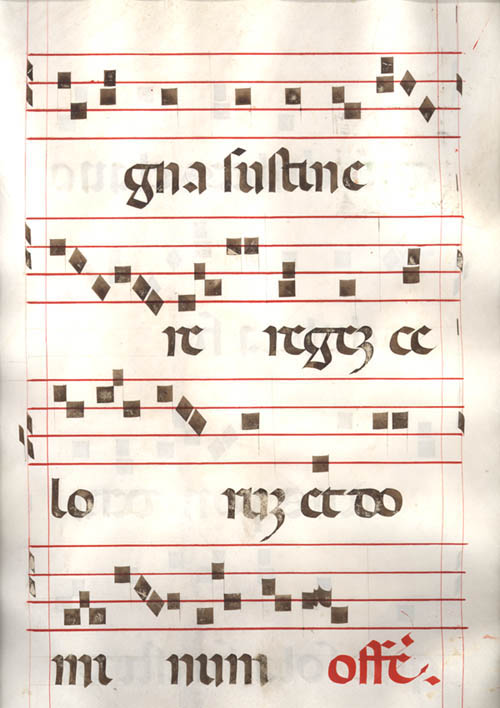 gna sustine
re regez ce
lo ruz et do
mi num offē.